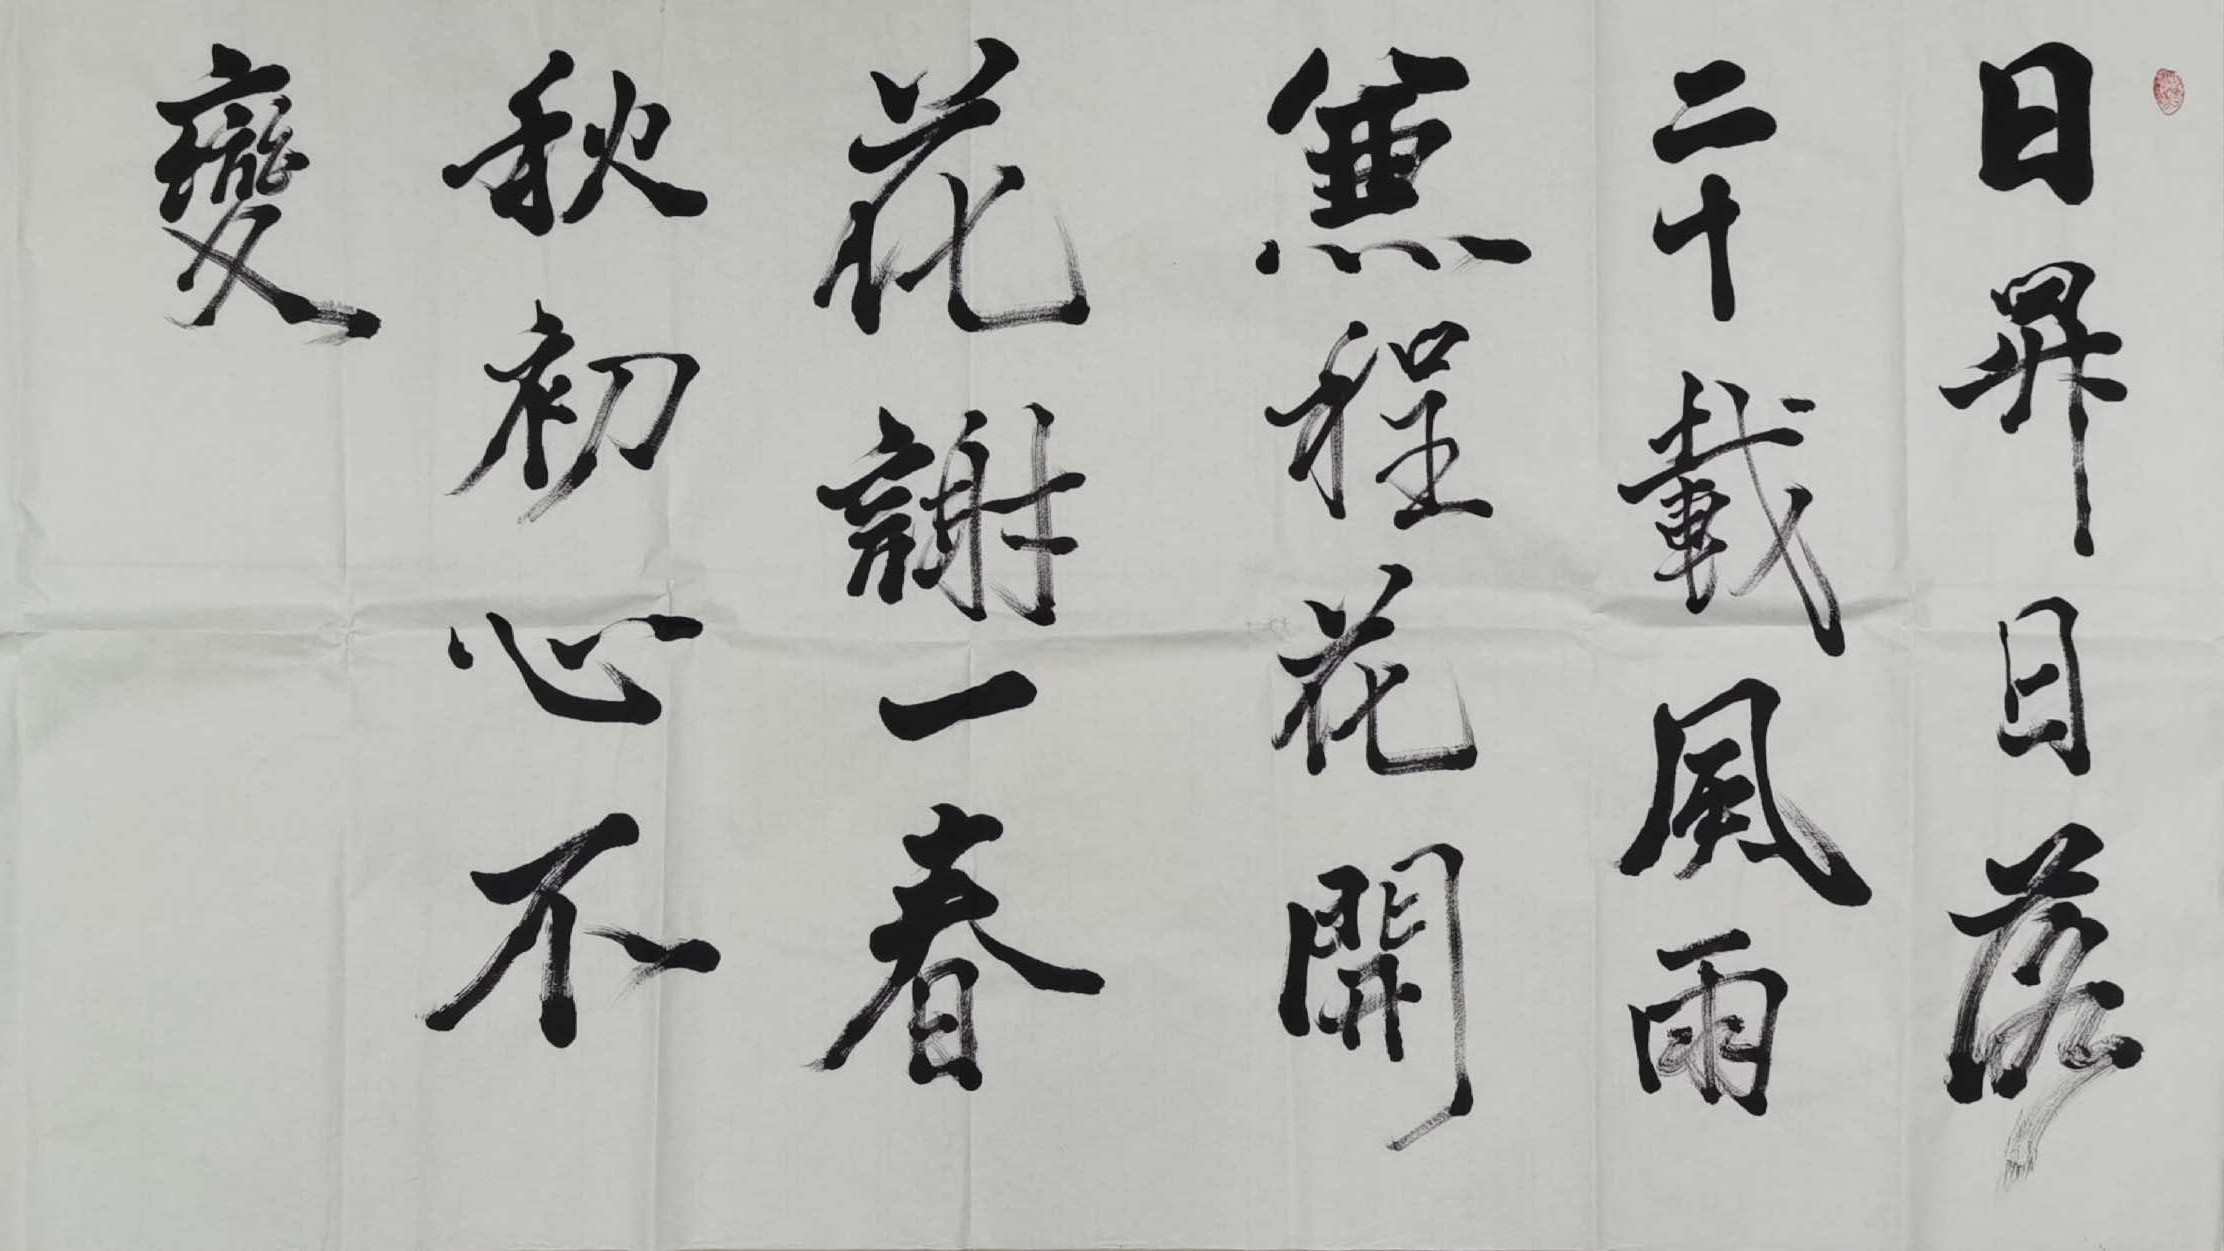 日昇日落
二十載風雨
無程花開
花謝一春
秋初心不
變